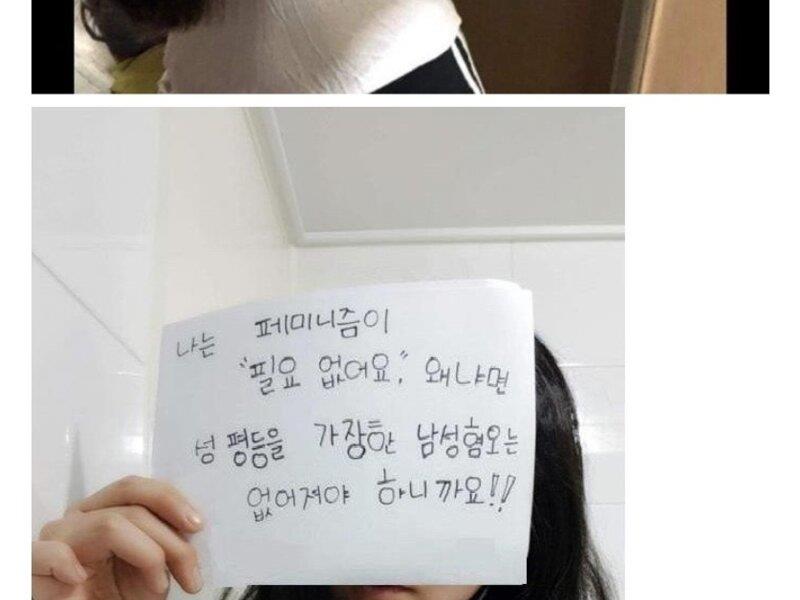 나는 페미니즘이
"필요 없어요," 왜냐면
성 평등을 가장한 남성혐오는
없어져야 하니까요!!